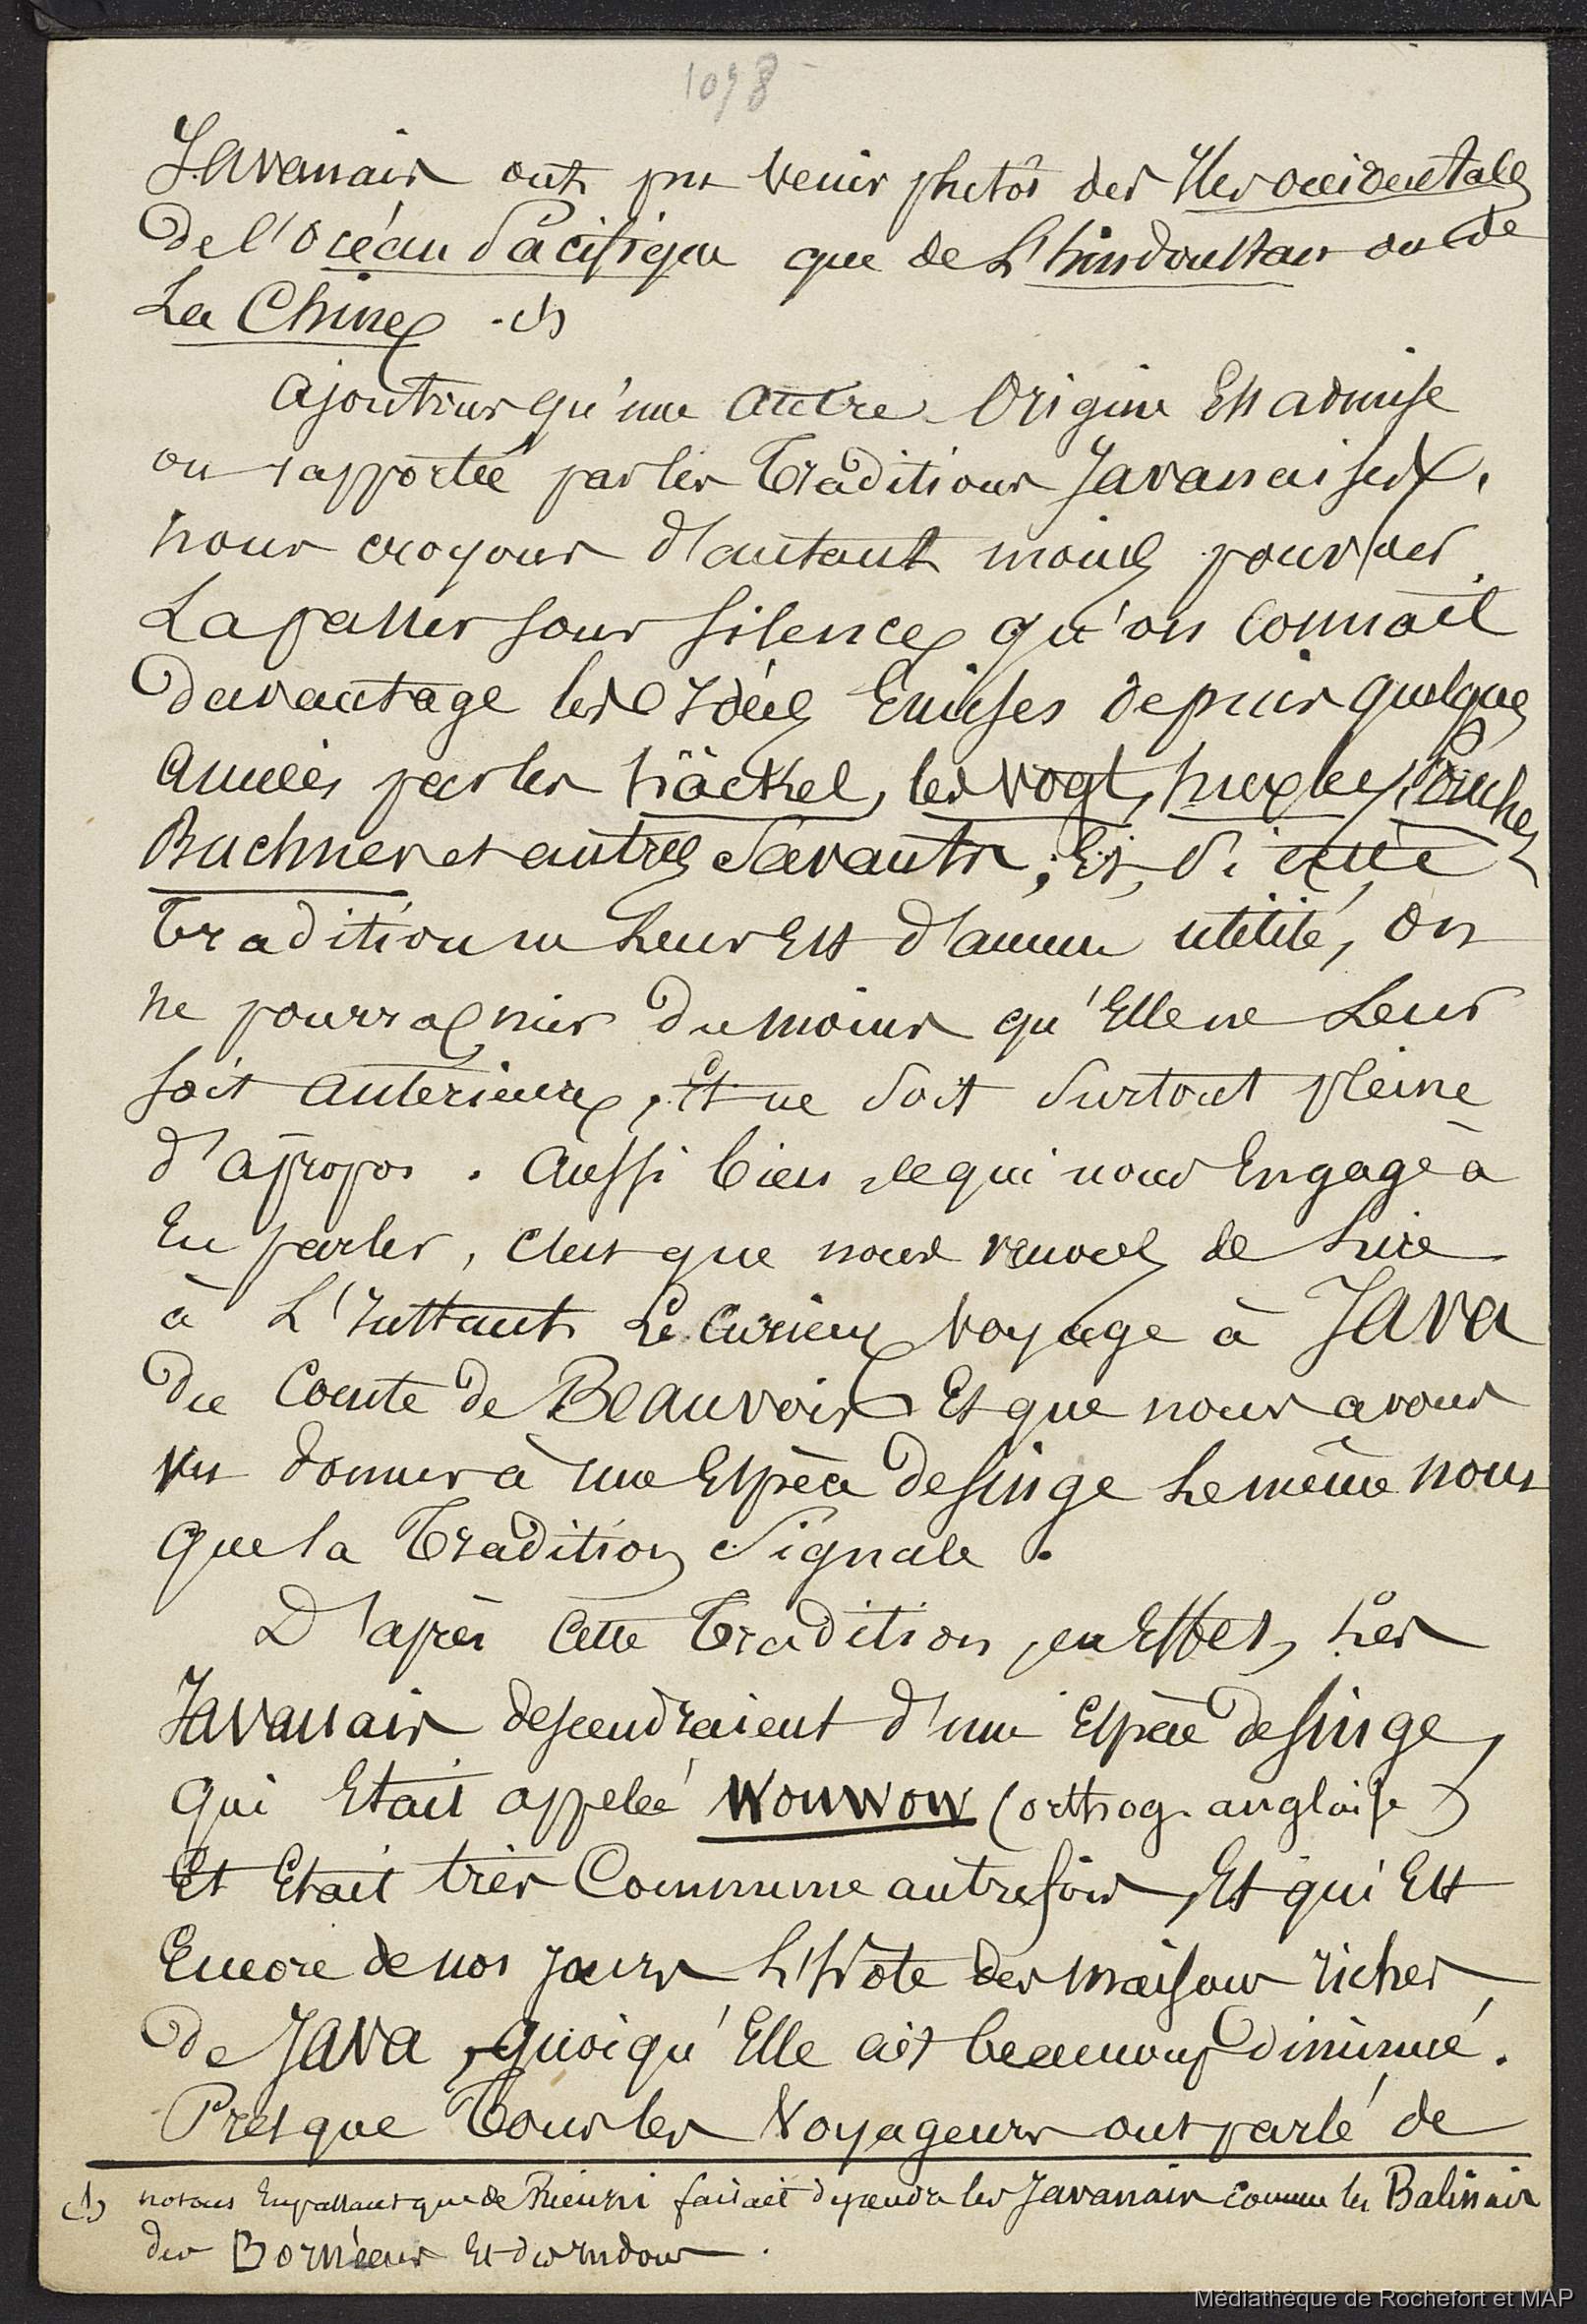 1098
Javanais ont pu venir plutôt des Iles occidentales
de l'océan Pacifique que de L'hindoustan ou de
La Chine. (1)
Ajoutons qu'une autre Origine Est admise
ou rapportée par les Traditions Javanaises,
nous croyons d'autant moins pouvoir
La passer sous silence qu'on connait
davantage les Idées Emises depuis quelques
années par les häckel, les Vogt, huxley, Pouchet
Buchner et autres Savants; Et, Si cette
Tradition ne Leur Est d'aucune utilité, on
ne pourra nier du moins qu'Elle ne Leur
soit anterieure, Et ne soit Surtout pleine
d'apropos. Aussi bien ce qui nous Engage à
En parler, c'est que nous venons de Lire
à L'Instant Le curieux voyage à JAVA
du Comte de Beauvoir Et que nous avons
vu donner à une Espèce de singe Le même nom
que la Tradition Signale.
D'après cette Tradition, en Effet, Les
Javanais descendraient d'une Espèce de singe,
qui Etait appelée WOUWOW (orthog. anglaise)
Et Etait très Commune autrefois, Et qui Est
Encore de nos jours L'Hôte des maisons riches
de JAVA, quoiqu'Elle ait beaucoup diminué.
Presque Tous les Voyageurs ont parlé de
(1) notons En passant que de Rienzi faisait descendre les Javanais comme les Balinais
des Bornéens Et des Indous.
Médiathèque de Rochefort et MAP